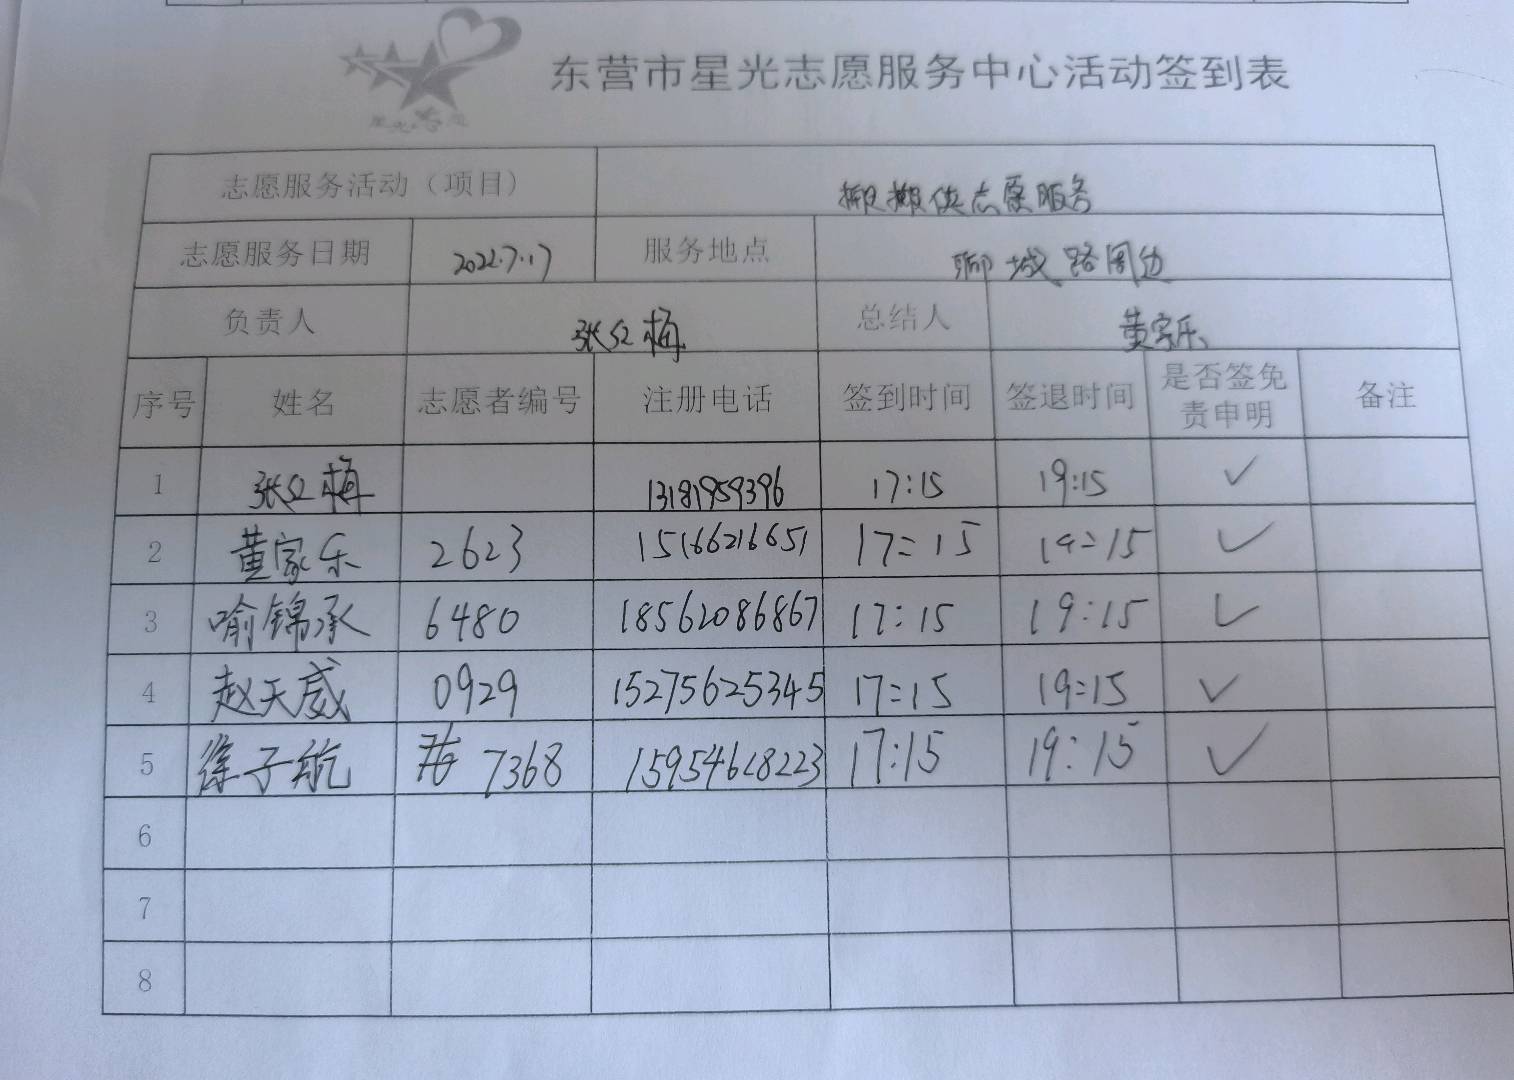 东营市星光志愿服务中心活动签到表
志愿服务活动（项目） 志愿服务
志愿服务日期 2022.7.17 服务地点 聊城路周边
负责人 张红梅 总结人 黄家乐
序号 姓名 志愿者编号 注册电话 签到时间 签退时间 是否签免责申明 备注
1 张红梅 13181959396 17:15 19:15 ✓
2 黄家乐 2623 15166216651 17:15 19:15 ✓
3 喻锦承 6480 18562086867 17:15 19:15 ✓
4 赵天威 0929 15275625345 17:15 19:15 ✓
5 徐子航 7368 15954628223 17:15 19:15 ✓
6
7
8